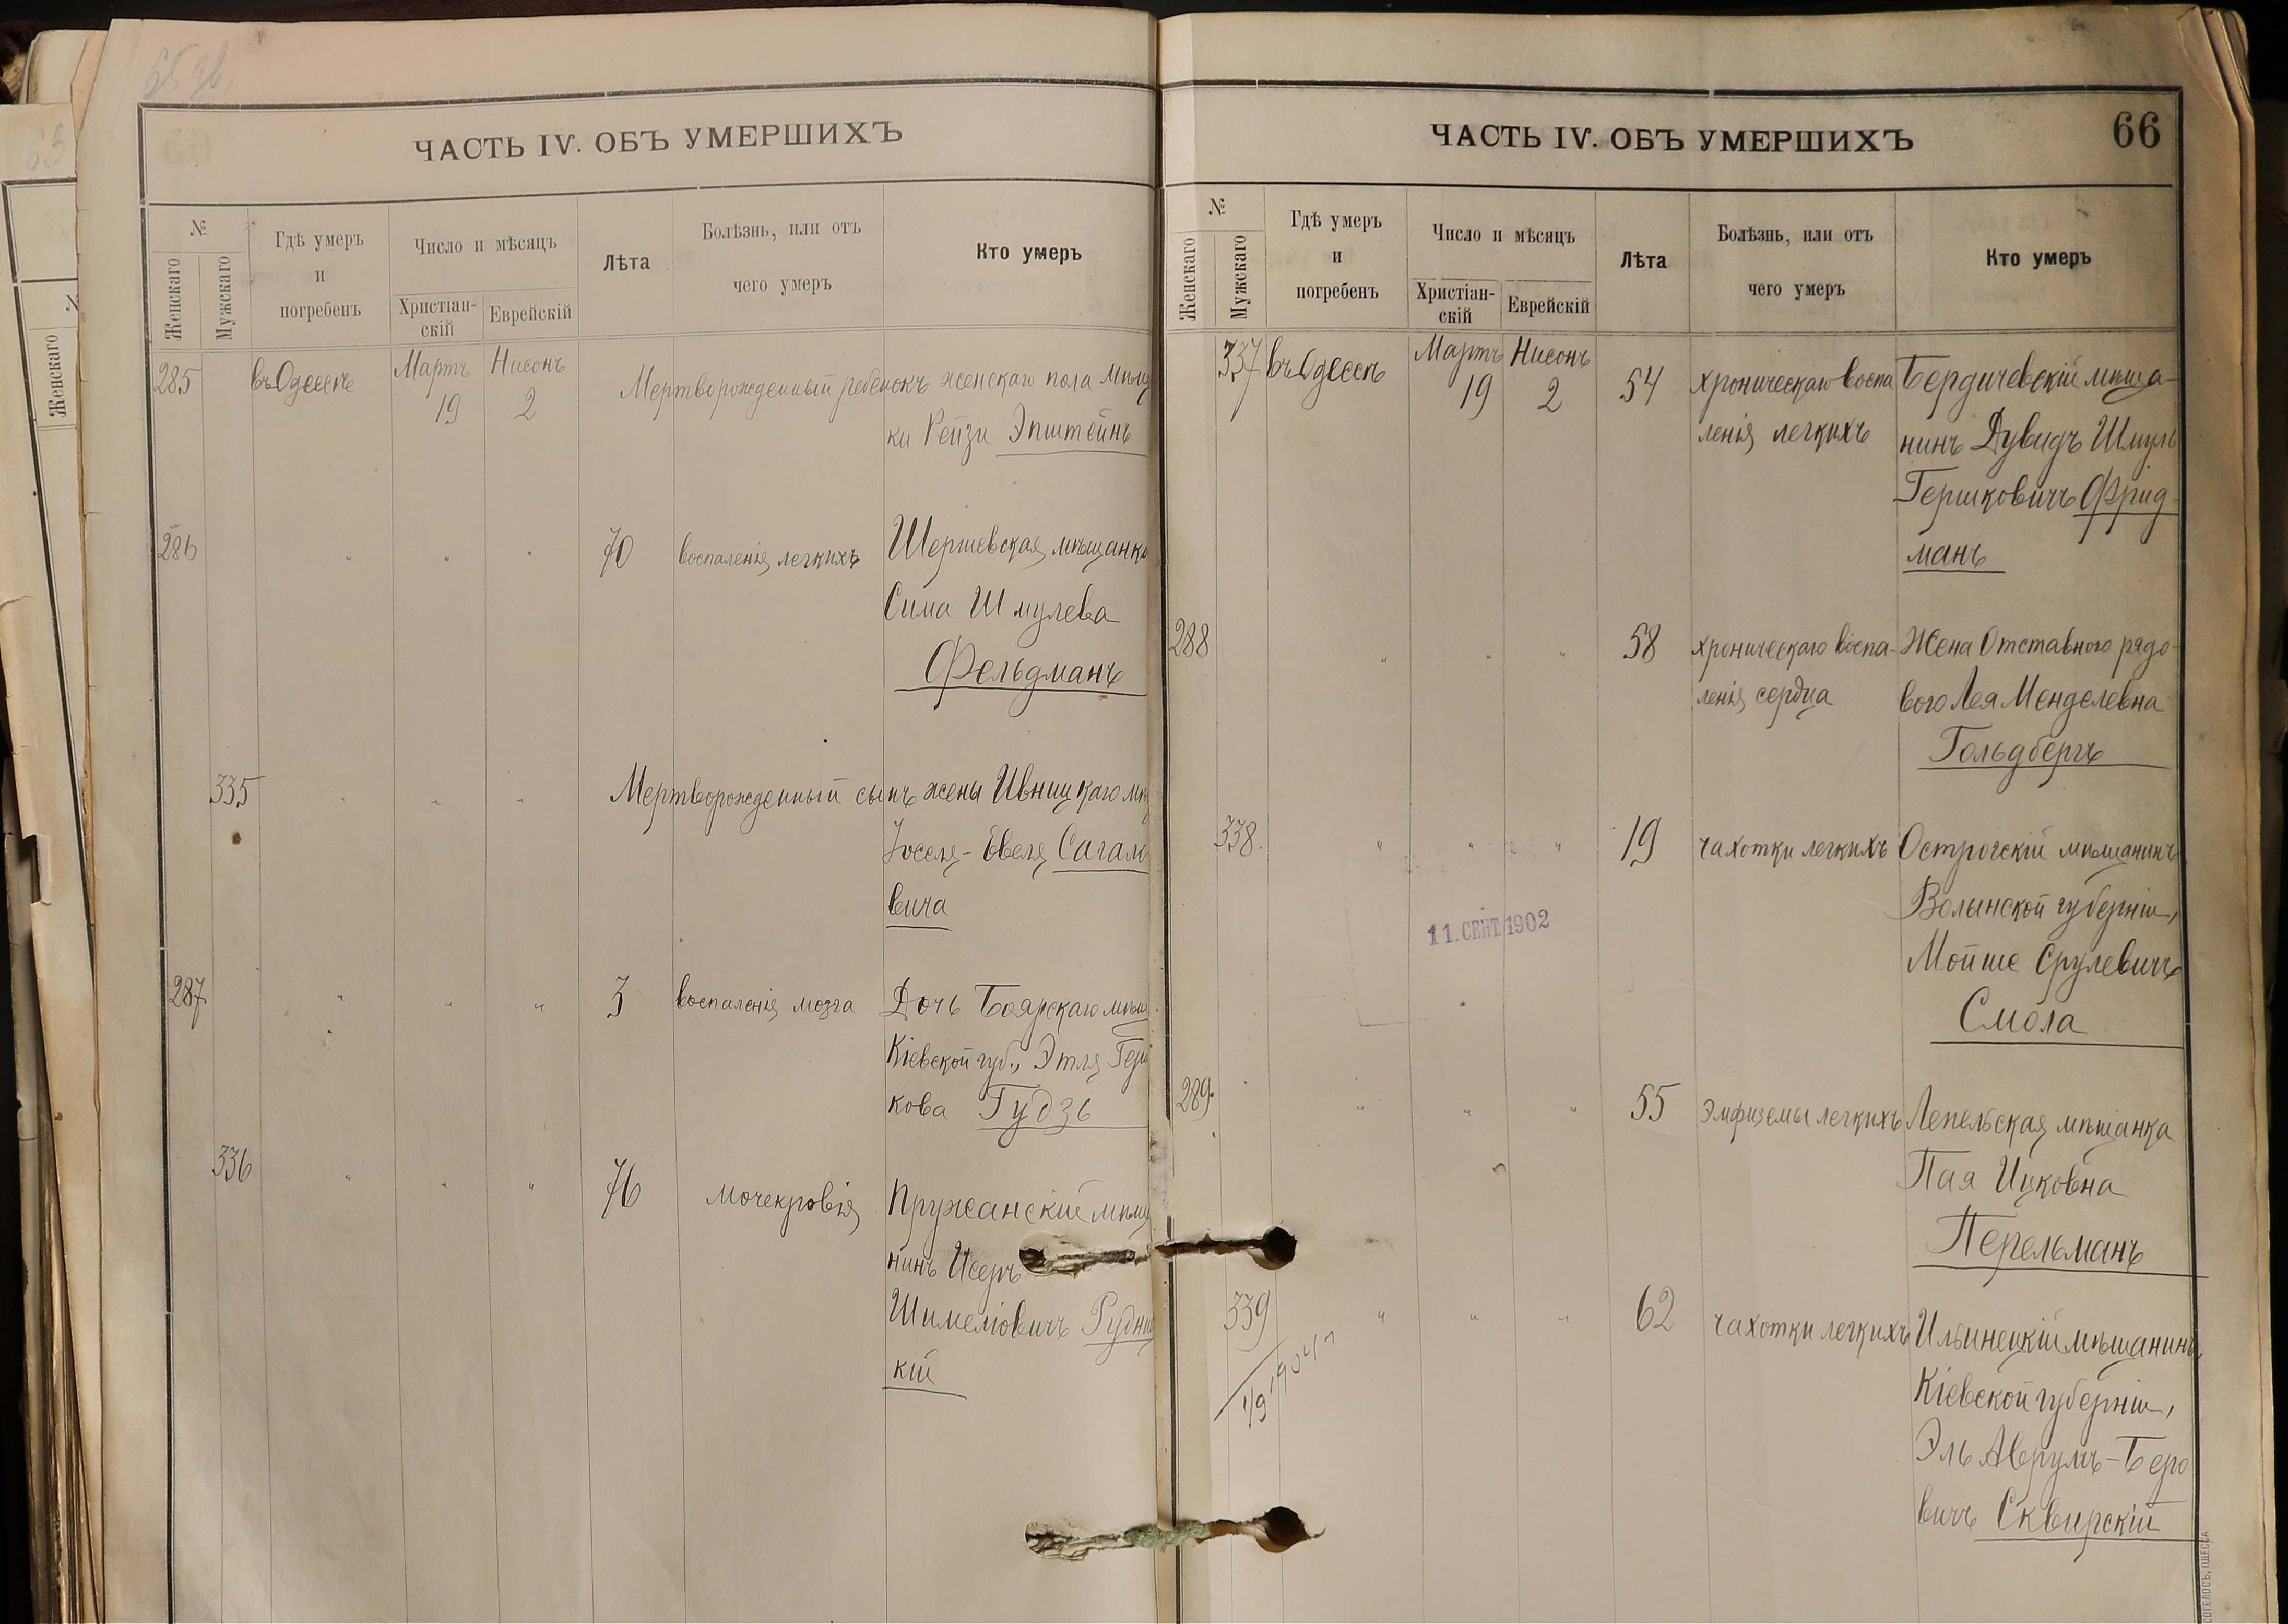 65 зв.
ЧАСТЬ IV. ОБЪ УМЕРШИХЪ
№
Женскаго
Мужскаго
Гдѣ умеръ
и
погребенъ
Число и мѣсяцъ
Христіан-
скій
Еврейскій
Лѣта
Болѣзнь, или отъ
чего умеръ
Кто умеръ
285 въ Одессѣ Мартъ 19 Нисонъ 2 Мертворожденный ребенокъ женскаго пола мѣщ
ки Рейзи Эпштейнъ
286 " " " 70 воспаленія легкихъ Шершевская мѣщанка
Сима Шмулева
Фельдманъ
335 " " " Мертворожденный сынъ жены Ивницкаго мѣщ
Іоселя-Евеля Сагало
вича
287 " " " 3 воспаленія мозга Дочь Боярскаго мѣщ
Кіевской губ., Этля Герш
кова Гудзь
336 " " " 76 мочекровія Пружанскій мѣща
нинъ Исеръ
Шимеліовичъ Рудниц
кій
ЧАСТЬ IV. ОБЪ УМЕРШИХЪ
66
№
Женскаго
Мужскаго
Гдѣ умеръ
и
погребенъ
Число и мѣсяцъ
Христіан-
скій
Еврейскій
Лѣта
Болѣзнь, или отъ
чего умеръ
Кто умеръ
337 въ Одессѣ Мартъ 19 Нисонъ 2 54 хроническаго воспа Бердичевскій мѣща-
ленія легкихъ нинъ Дувидъ Шмуль
Гершковичъ Фрид-
манъ
288 " " " 58 хроническаго воспа- Жена Отставного рядо-
ленія сердца вого Лея Менделевна
Гольдбергъ
338. " " " 19 чахотки легкихъ Острогскій мѣщанинъ
Волынской губерніи,
11.СЕНТ.1902
Мойше Срулевичъ
Смола
289. " " " 55 эмфиземы легкихъ Лепельская мѣщанка
Пая Ицковна
Перельманъ
339 " " " 62 чахотки легкихъ Ильинецкій мѣщанинъ
Кіевской губерніи,
Эль Аврумъ-Беро
вичъ Сквирскій